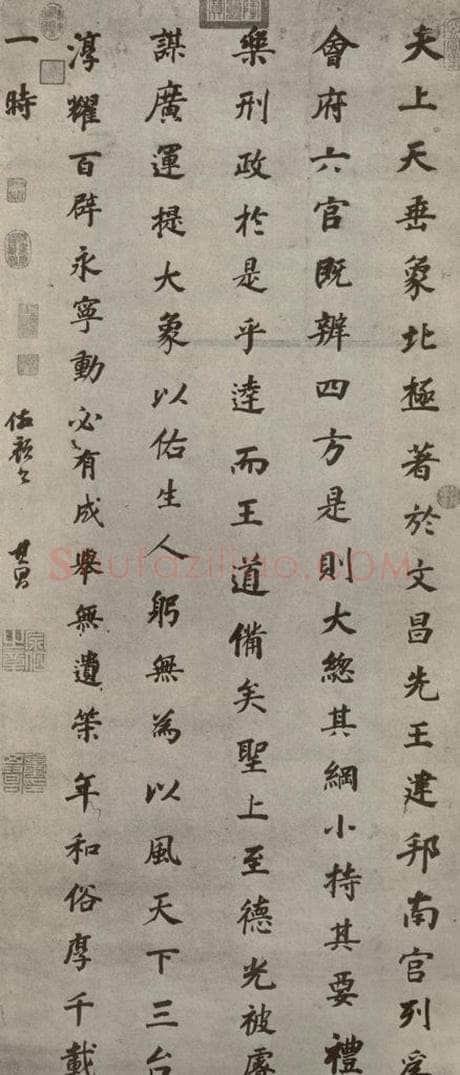 夫上天垂象北極著於文昌先王建邦南官列爲
會府六官既辨四方是則大總其綱小持其要禮
樂刑政於是乎達而王道備矣聖上至德光被
謀廣運提大象以佑生人躬無為以風天下三台
淳耀百辟永寧動必有成舉無遺策年和俗厚千載
一時
其昌
Shufaziliao.COM